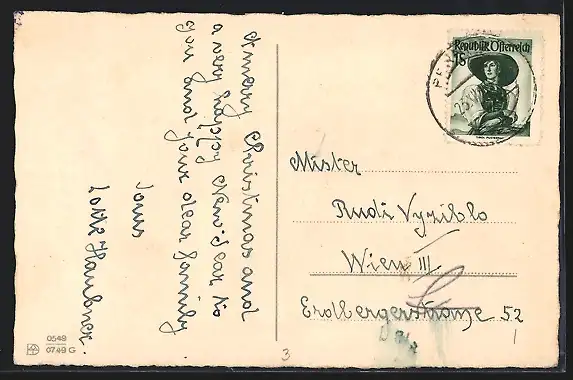 A mary Christmas and
a very happy New-Year to
you and your dear family.
Yours
Lotte Haubner.
0549
0749 G
REPUBLIK ÖSTERREICH
1S
Mister
Rudi Vyziblo
Wien III
Erdbergerstrasse 52
3